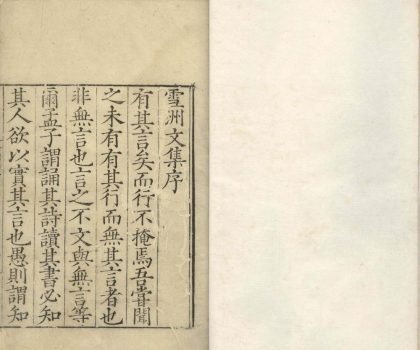 雪洲文集序
有其言矣而行不掩焉吾嘗聞
之未有有其行而無其言者也
非無言也言之不文與無言等
爾孟子謂誦其詩讀其書必知
其人欲以實其言也愚則謂知